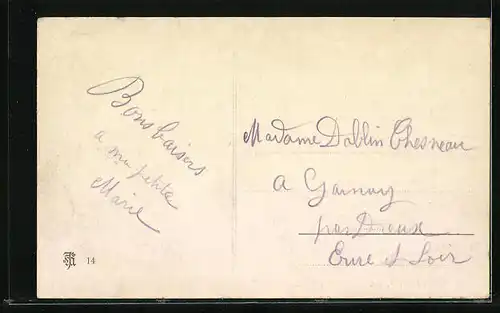 Bons baisers
a ma petite
Marie
Madame Dablin Chesneau
A Garnay
par Dreux
Eure et Loir
14